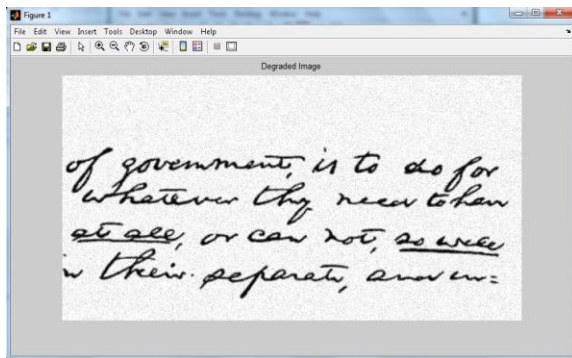 Figure 1
File Edit View Insert Tools Desktop Window Help
Degraded Image
of government, is to do for
whatever they need to have
at all, or can not, so well
in their separate, and in=